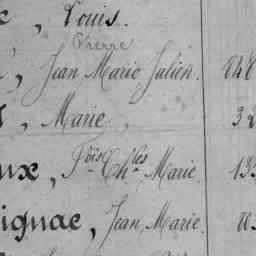 , Louis.
Pierre
, Jean Marie Julien. 848
, Marie, 32
ux, Fois Ch.les Marie. 135
ignac, Jean Marie.